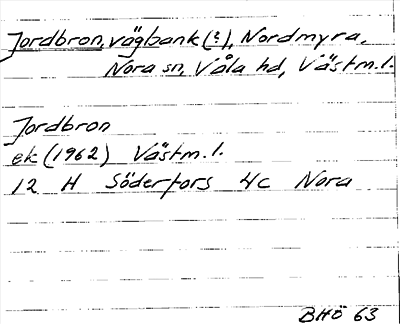 Jordbron, vägbank (?), Nordmyra,
Nora sn, Våla hd, Västm.l.
Jordbron
ek (1962) Västm.l.
12 H Söderfors 4c Nora
BHÖ 63